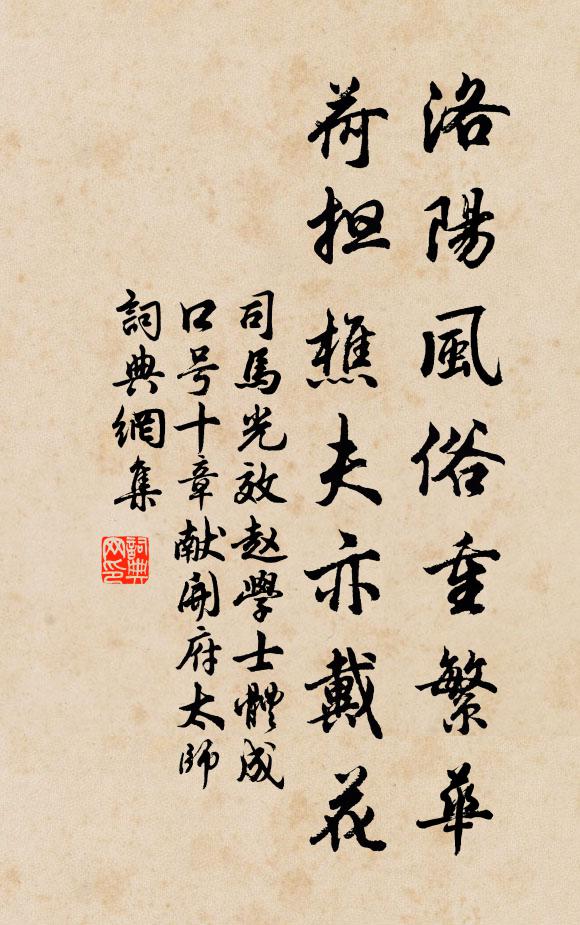 洛陽風俗重繁華
荷担樵夫亦戴花
司馬光效赵學士體成
口号十章献開府太師
詞典網集
詞典网印